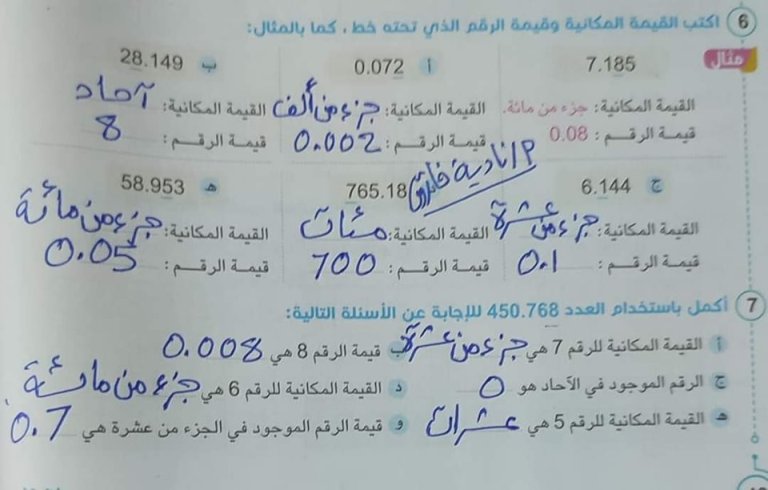 6 اكتب القيمة المكانية وقيمة الرقم الذي تحته خط، كما بالمثال:
مثال 7.185 أ 0.072 ب 28.149
القيمة المكانية: جزء من مائة. القيمة المكانية: جزء من ألف القيمة المكانية: آحاد
قيمة الرقم: 0.08 قيمة الرقم: 0.002 قيمة الرقم: 8
م/ نادية فاروق
ج 6.144 765.18 هـ 58.953
القيمة المكانية: جزء من عشرة القيمة المكانية: مئات القيمة المكانية: جزء من مائة
قيمة الرقم: 0.1 قيمة الرقم: 700 قيمة الرقم: 0.05
7 أكمل باستخدام العدد 450.768 للإجابة عن الأسئلة التالية:
أ القيمة المكانية للرقم 7 هي جزء من عشرة ب قيمة الرقم 8 هي 0.008
ج الرقم الموجود في الآحاد هو 0 د القيمة المكانية للرقم 6 هي جزء من مائة
هـ القيمة المكانية للرقم 5 هي عشرات و قيمة الرقم الموجود في الجزء من عشرة هي 0.7